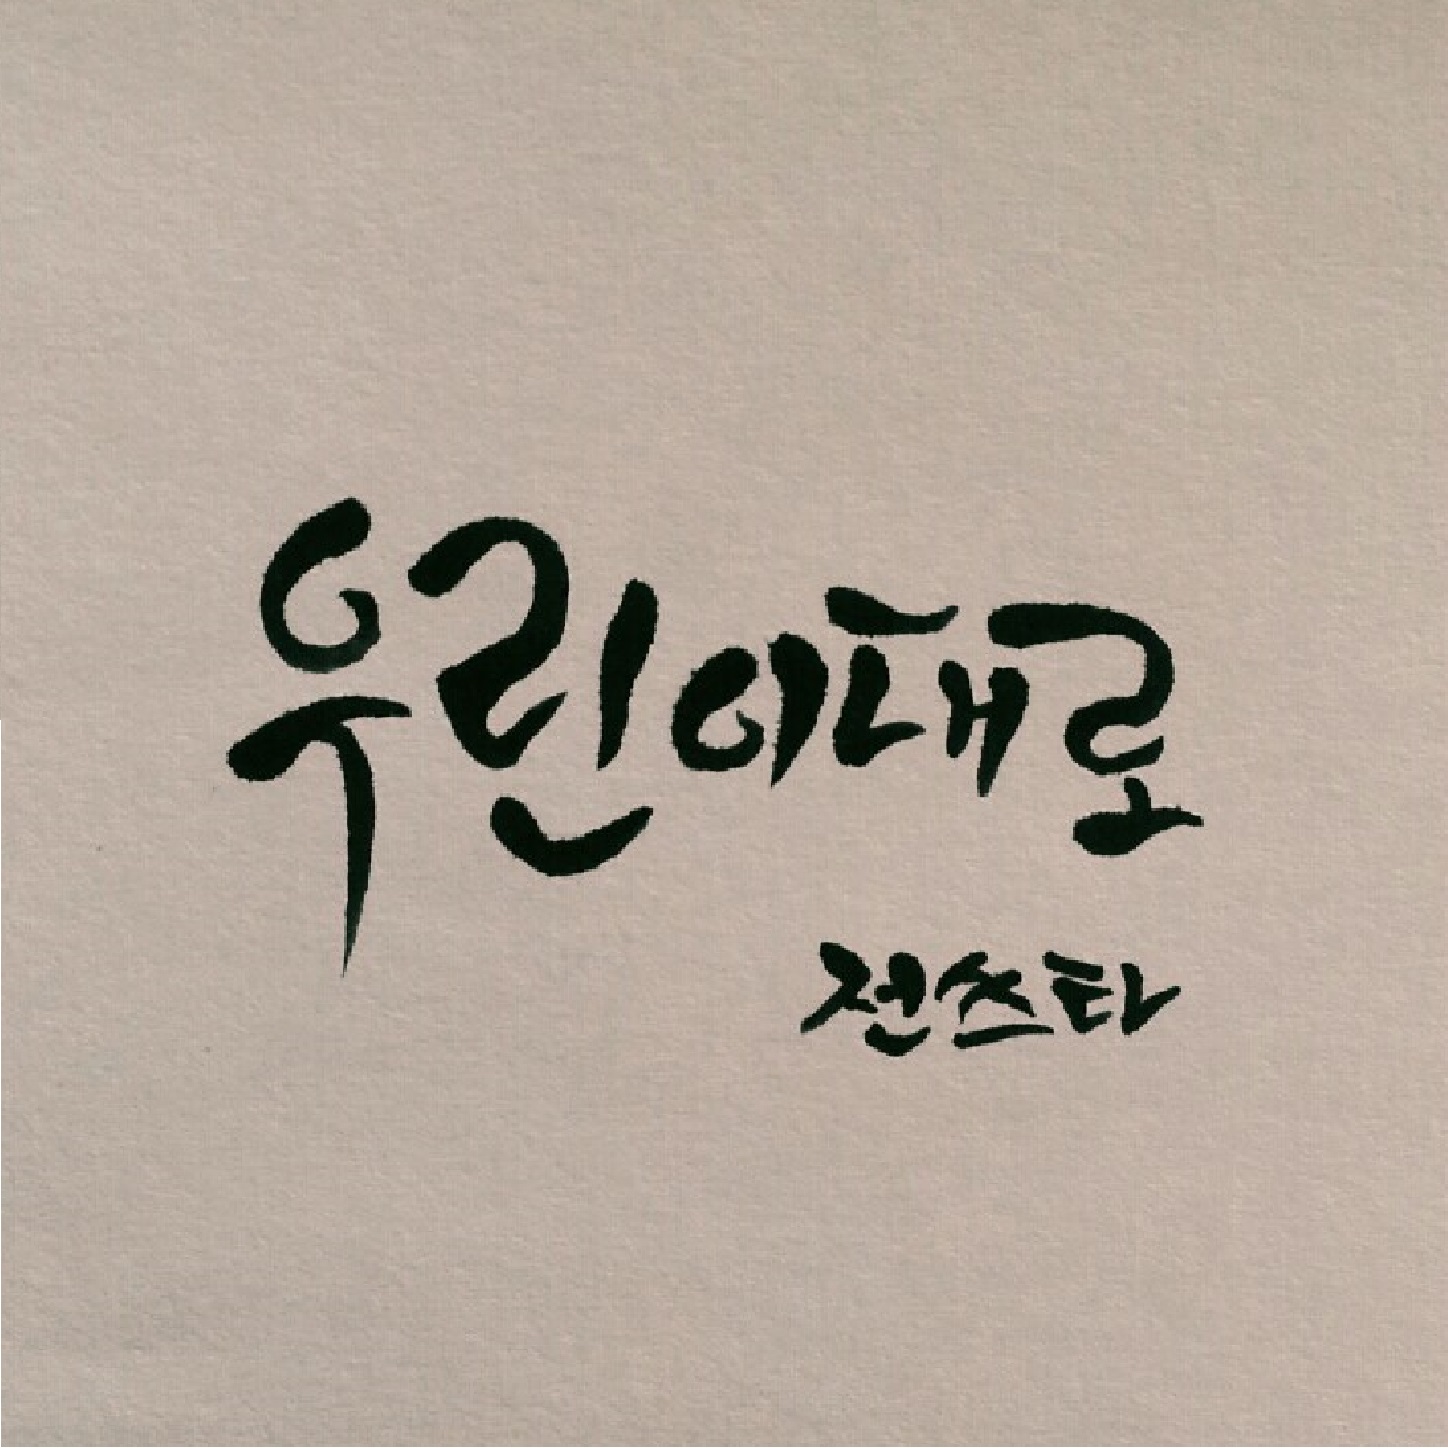 우린이대로
전쓰타